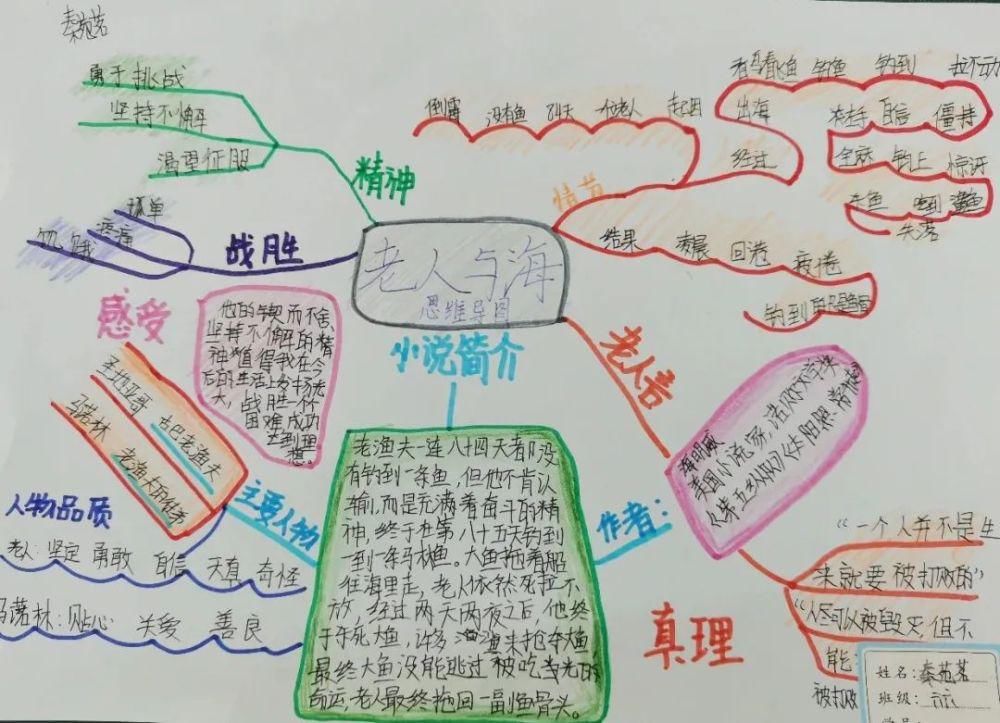 秦苑茗
勇于挑战
坚持不懈
渴望征服
精神
孤单
疼痛
饥饿
战胜
老人与海
思维导图
情节
倒霉 没有鱼 84天 一位老人 起因
出海
经过
钓鱼 钓到 拉不动
坚持 自信 僵持
钓上 惊讶
失落
结果 凌晨 回港 疲倦
钓到
感受
他的锲而不舍、
坚持不懈的精
神值得我在今
后的生活上发扬光
大,战胜一个个
困难,成功
达到理
想。
小说简介
老渔夫一连八十四天都没
有钓到一条鱼,但他不肯认
输,而是充满着奋斗的精
神,终于在第八十五天钓到
一到一条马林鱼。大鱼拖着船
往海里走,老人依然死拉不
放,经过两天两夜之后,他终
于杀死大鱼,许多鲨鱼来抢夺大鱼
最终大鱼没能逃过被吃光的
命运,老人最终拖回一副鱼骨头。
主要人物
圣地亚哥 古巴老渔夫
马诺林 老渔夫的徒弟
人物品质
老人:坚定 勇敢 自信 天真 奇怪
马诺林:贴心 关爱 善良
作者:
海明威
美国小说家,诺贝尔文学奖
《第五纵队》《太阳照常升起》
真理
“一个人并不是生
来就要被打败的”
“人尽可以被毁灭,但不
能
被打败
姓名:秦苑茗
班级:
学号